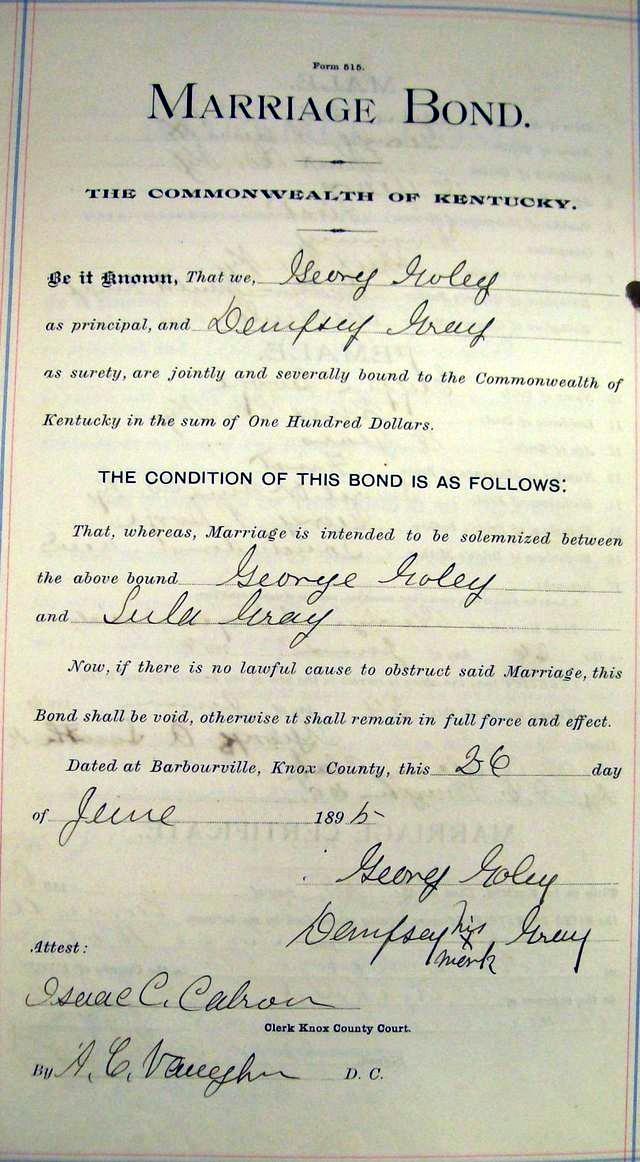 Form 515.
MARRIAGE BOND.
THE COMMONWEALTH OF KENTUCKY.
Be it Known, That we, Georg Goley
as principal, and Dempsey Gray
as surety, are jointly and severally bound to the Commonwealth of
Kentucky in the sum of One Hundred Dollars.
THE CONDITION OF THIS BOND IS AS FOLLOWS:
That, whereas, Marriage is intended to be solemnized between
the above bound George Goley
and Lula Gray
Now, if there is no lawful cause to obstruct said Marriage, this
Bond shall be void, otherwise it shall remain in full force and effect.
Dated at Barbourville, Knox County, this 26 day
of June 1895
Georg Goley
Dempsey his x mark Gray
Attest:
Isaac C.
Clerk Knox County Court.
By A. C. Vaughn D. C.